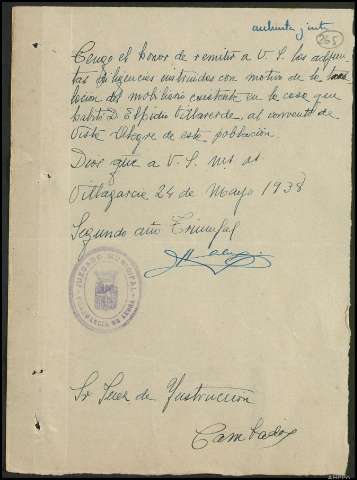 265
Tengo el honor de remitir a V. S. las adjun-
tas diligencias instruidas con motivo de la tras-
lacion del mobiliario existente en la casa que
habitó D. Elpidio Villaverde, al convento de
Vista Alegre de esta población.
Dios gue a V. S. ms as
Villagarcia 24 de Mayo 1938
Segundo año Triunfal
JUZGADO MUNICIPAL
VILLAGARCIA DE AROSA
Sr Juez de Ynstruccion
Cambados